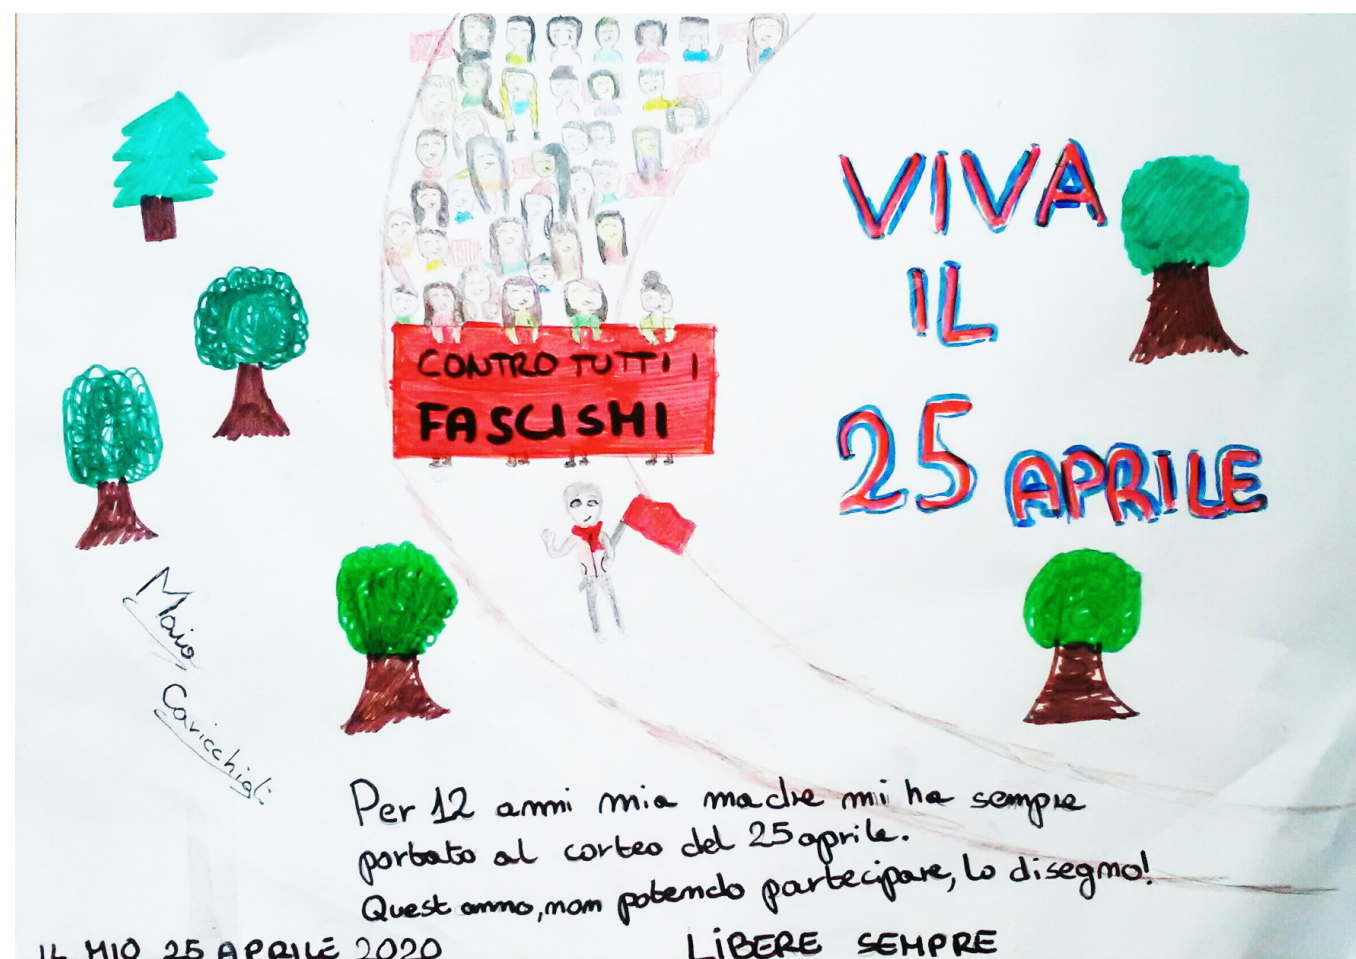 VIVA
IL
25 APRILE
CONTRO TUTTI I
FASCISMI
Maio
Caricchigli
Per 12 anni mia madre mi ha sempre
portato al corteo del 25 aprile.
Quest anno, non potendo partecipare, lo disegno!
IL MIO 25 APRILE 2020
LIBERE SEMPRE